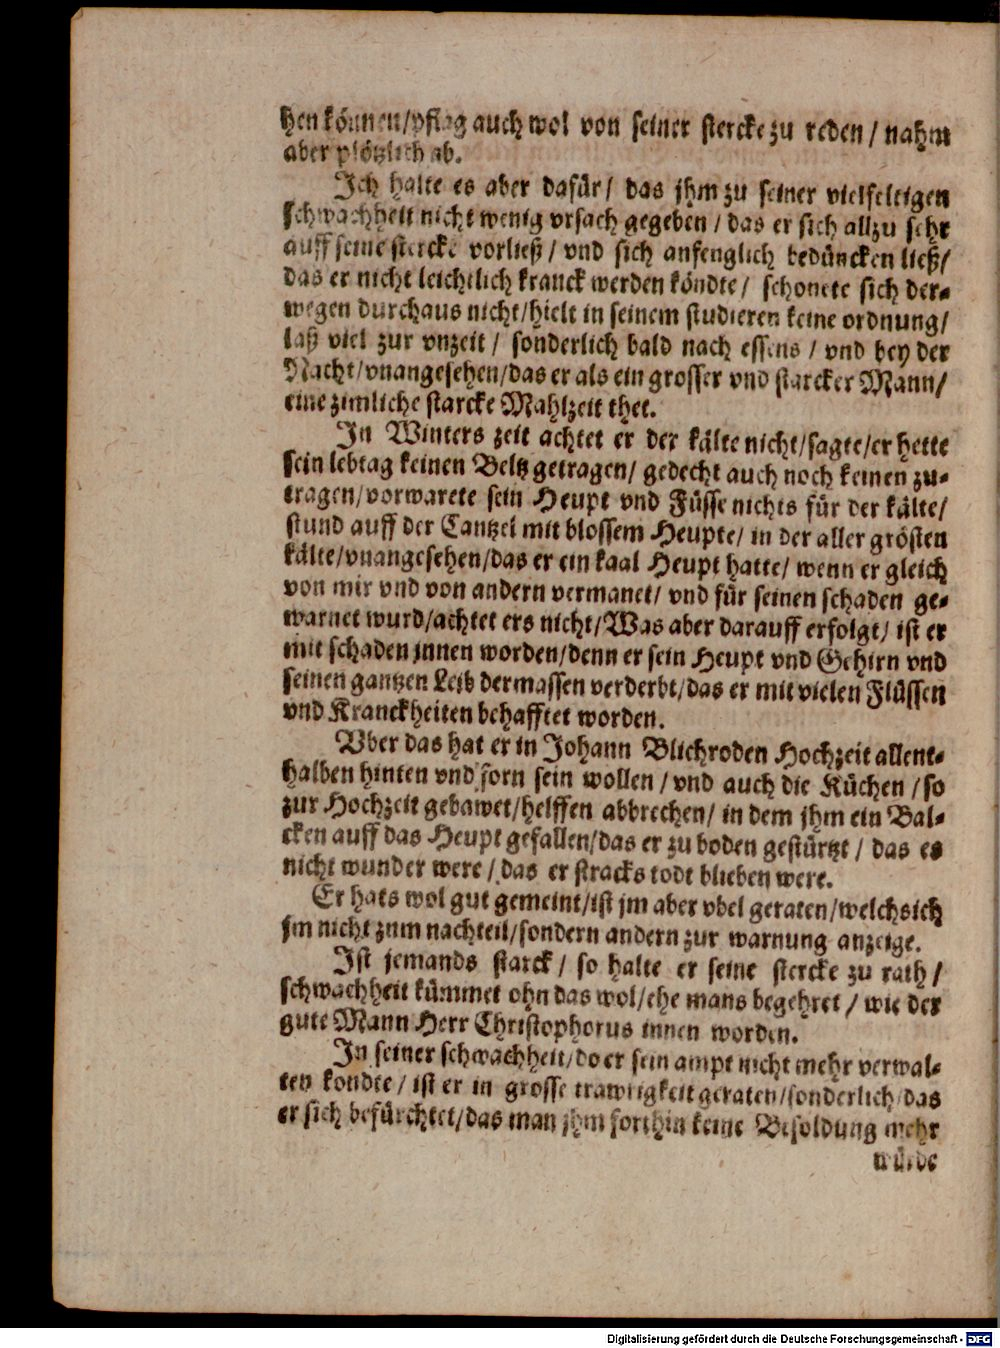 hen können/pflag auch wol von seiner stercke zu reden / nahm
aber plötzlich ab.
Ich halte es aber dafür / das jhm zu seiner vielfeltigen
schwachheit nicht wenig vrsach gegeben / das er sich allzu sehr
auff seine stercke vorließ / vnd sich anfenglich bedüncken ließ/
das er nicht leichtlich kranck werden köndte / schonete sich der-
wegen durchaus nicht/hielt in seinem studieren keine ordnung/
laß viel zur vnzeit / sonderlich bald nach essens / vnd bey der
Nacht/vnangesehen/das er als ein grosser vnd starcker Mann/
eine zimliche starcke Mahlzeit thet.
In Winters zeit achtet er der kälte nicht/sagte/er hette
sein lebtag keinen Beltz getragen/ gedecht auch noch keinen zu-
tragen/vorwarete sein Heupt vnd Füsse nichts für der kälte/
stund auff der Cantzel mit blossem Heupte/ in der aller grösten
kälte/vnangesehen/das er ein kaal Heupt hatte/ wenn er gleich
von mir vnd von andern vermanet/ vnd für seinen schaden ge-
warnet wurd/achtet ers nicht/Was aber darauff erfolgt/ ist er
mit schaden jnnen worden/denn er sein Heupt vnd Gehirn vnd
seinen gantzen Leib dermassen verderbt/das er mit vielen Flüssen
vnd Kranckheiten behafftet worden.
Vber das hat er in Johann Blichroden Hochzeit allent-
halben hinten vnd forn sein wollen / vnd auch die Küchen / so
zur Hochzeit gebawet/helffen abbrechen/ in dem jhm ein Bal-
cken auff das Heupt gefallen/das er zu boden gestürtzt / das es
nicht wunder were / das er stracks todt blieben were.
Er hats wol gut gemeint/ist jm aber vbel geraten/welchs ich
jm nicht zum nachteil/sondern andern zur warnung anzeige.
Ist jemands starck / so halte er seine stercke zu rath /
schwachheit kümmet ohn das wol/ehe mans begehret / wie der
gute Mann Herr Christophorus innen worden.
In seiner schwachheit/do er sein ampt nicht mehr verwal-
ten kondte / ist er in grosse trawrigkeit geraten/sonderlich das
er sich befürchtet/das man jhm forthin keine Besoldung mehr
würde
Digitalisierung gefördert durch die Deutsche Forschungsgemeinschaft - DFG